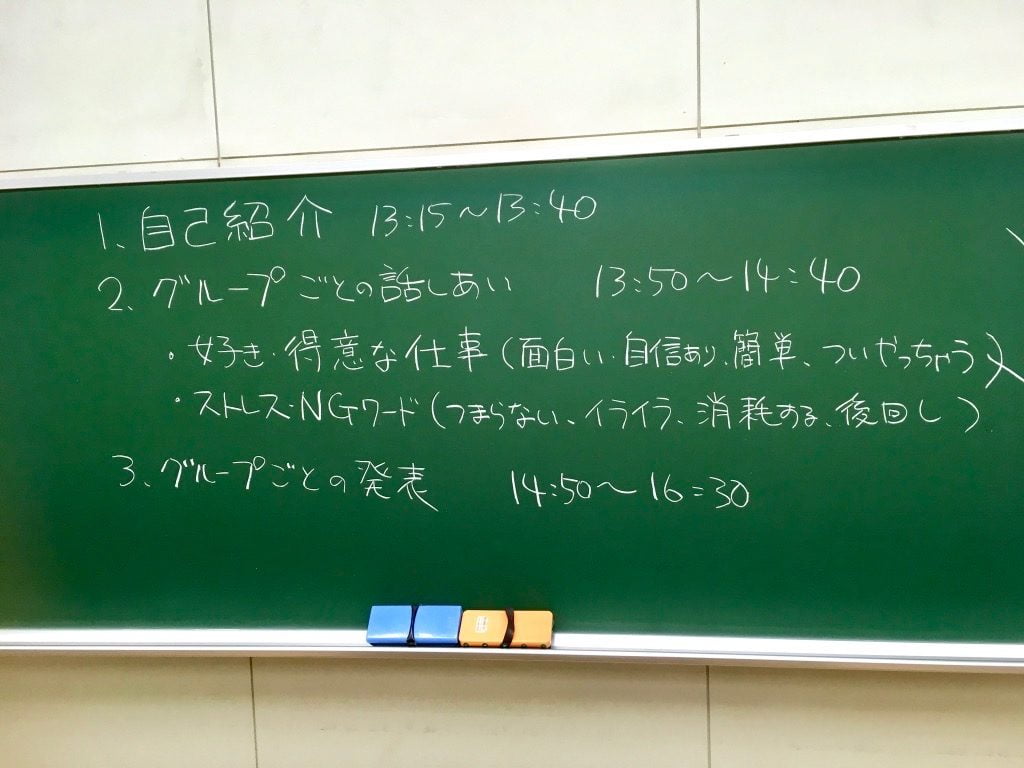 1、自己紹介 13:15〜13:40
2、グループごとの話しあい 13:50〜14:40
・好き・得意な仕事(面白い・自信あり、簡単、ついやっちゃう)
・ストレス・NGワード(つまらない、イライラ、消耗する、後回し)
3、グループごとの発表 14:50〜16:30